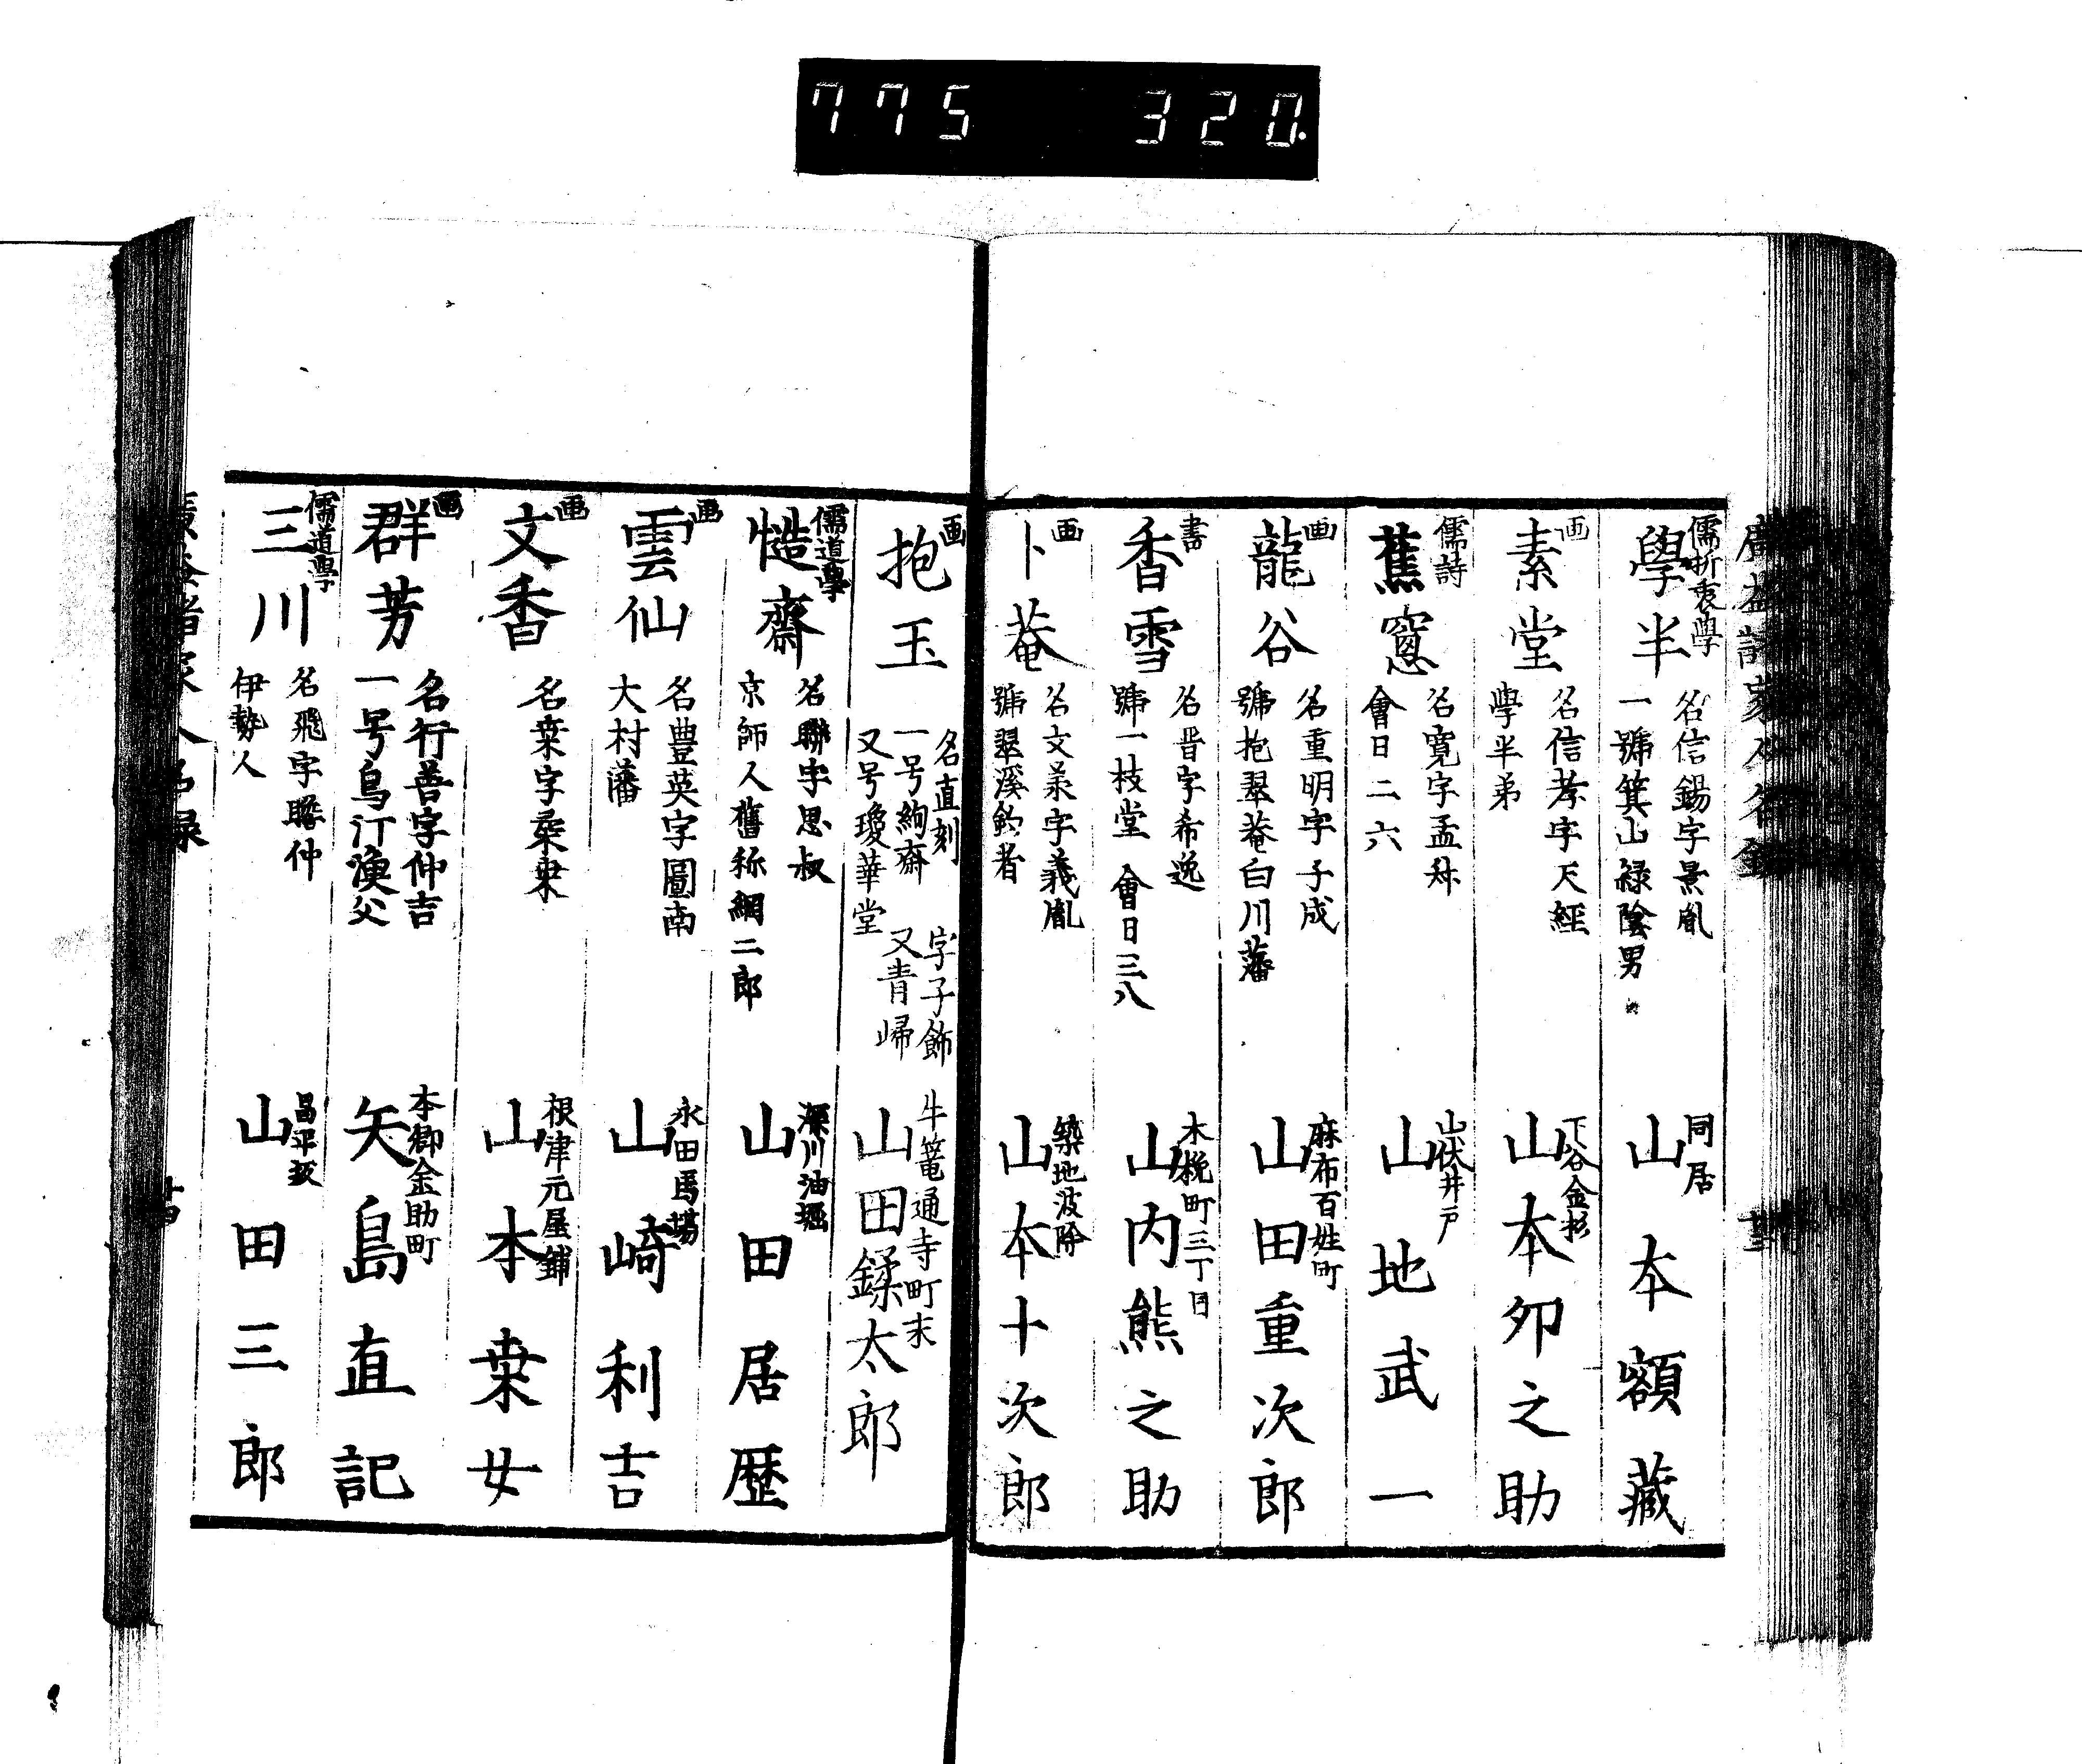 775 320.
儒折衷學
學半
名信錫字景胤
一號箕山緑陰男
同居
山本額藏
画
素堂
名信孝字天經
學半弟
下谷金杉
山本卯之助
儒詩
蕉窓
名寛字孟
會日二六
山伏井戸
山地武一
画
龍谷
名重明字子成
號抱翠菴白川藩
麻布百姓町
山田重次郎
書
香雪
名晋字希逸
號一枝堂 會日三八
木挽町三丁目
山内熊之助
画
卜菴
名文美字義胤
號翠溪釣者
築地波除
山本十次郎
画
抱玉
名直刻 字子飾
一号絢齋 又青歸
又号瓊華堂
牛篭通寺町末
山田鍒太郎
儒道學
慥齋
名聯字思叔
京師人舊称綱二郎
深川油堀
山田居歴
画
雲仙
名豊英字圖南
大村藩
永田馬場
山崎利吉
画
文香
名桒字桒東
根津元屋鋪
山本桒女
画
群芳
名行善字仲吉
一号烏汀漁父
本郷金助町
矢島直記
儒道學
三川
名飛字聯仲
伊勢人
昌平坂
山田三郎